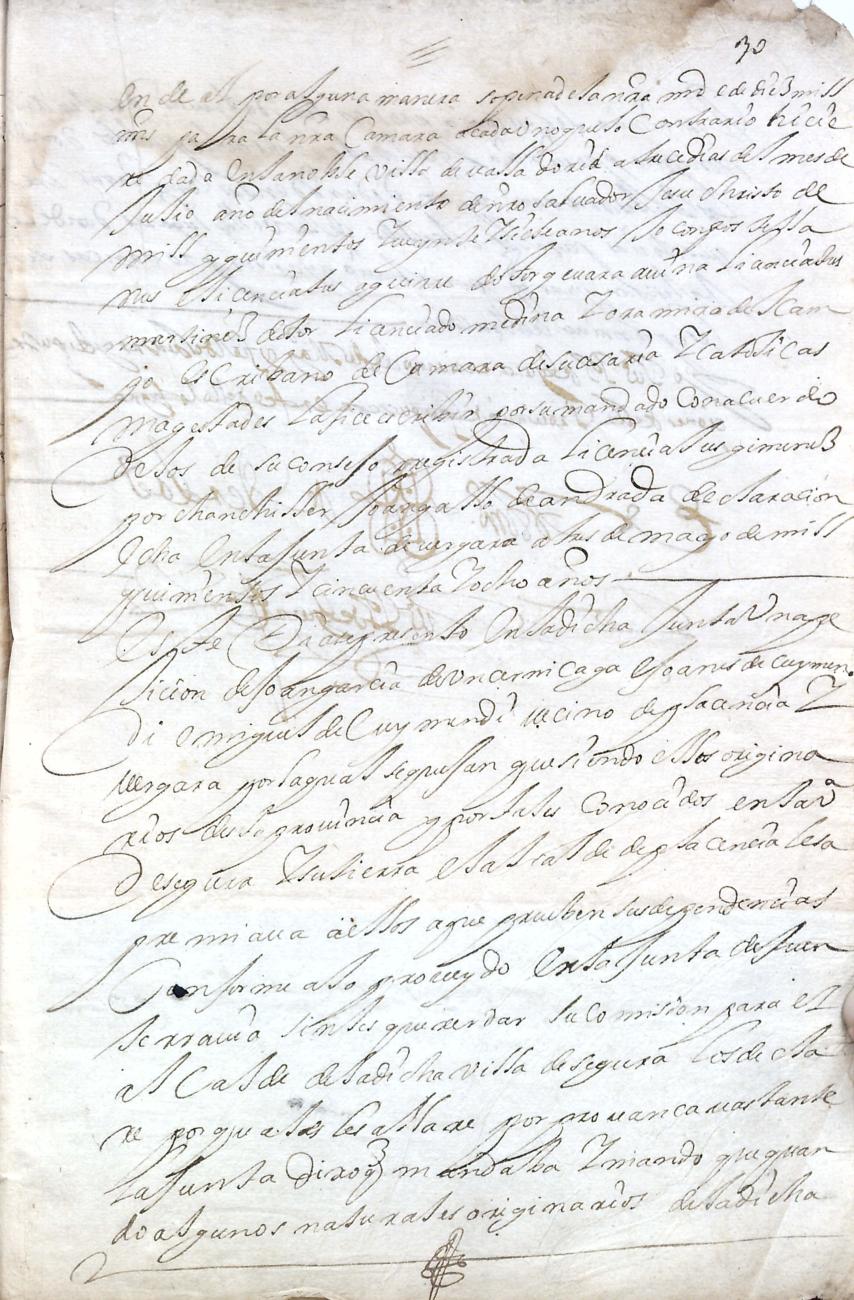 30
en de al por alguna manera so pena de la nra md e de diez mill
mrs para la nra Camara a cada uno que lo Contrario hicie
re dada en la noble villa de valladorid a trece dias del mes de
Jullio año del nacimiento de nro salvador Jesu christo de
mill y quinientos y veynte y siete anos
nus elicenciatus aguirre dotor guevara acuña licenciatus
martinez dotor licenciado medina yo ramiro del cam
po escribano de Camara de su cesarea y catolicas
magestades la fice escribir por su mandado con acuerdo
de los de su consejo rregistrada licenciatus gimenez
por chanchiller Joan gallo de andrada declaracion
fecha en la Junta de vergara a tres de mayo de mill
y quinientos y cincuenta y ocho años
Este dia represento en la dicha Junta una pe
ticion de Joan garcia de uncernicaga e Joanes de cuymen
di e miguel de Cuymendi vecino de placencia y
vergara por la qual sequesan que siendo ellos origina
rios desta provincia y por tales conocidos en la va
de segura y su tierra el alcalde de placencia les a
premiava a ellos a que prueben sus dependencias
Conforme a lo proveydo en la Junta de fuen
terravia sin les querer dar su comision para el
alcalde de la dicha villa de segura les decla
re por quales les allare por provanca vastante
la Junta dixo q mandaba y mando que quan
do algunos naturales originarios de la dicha